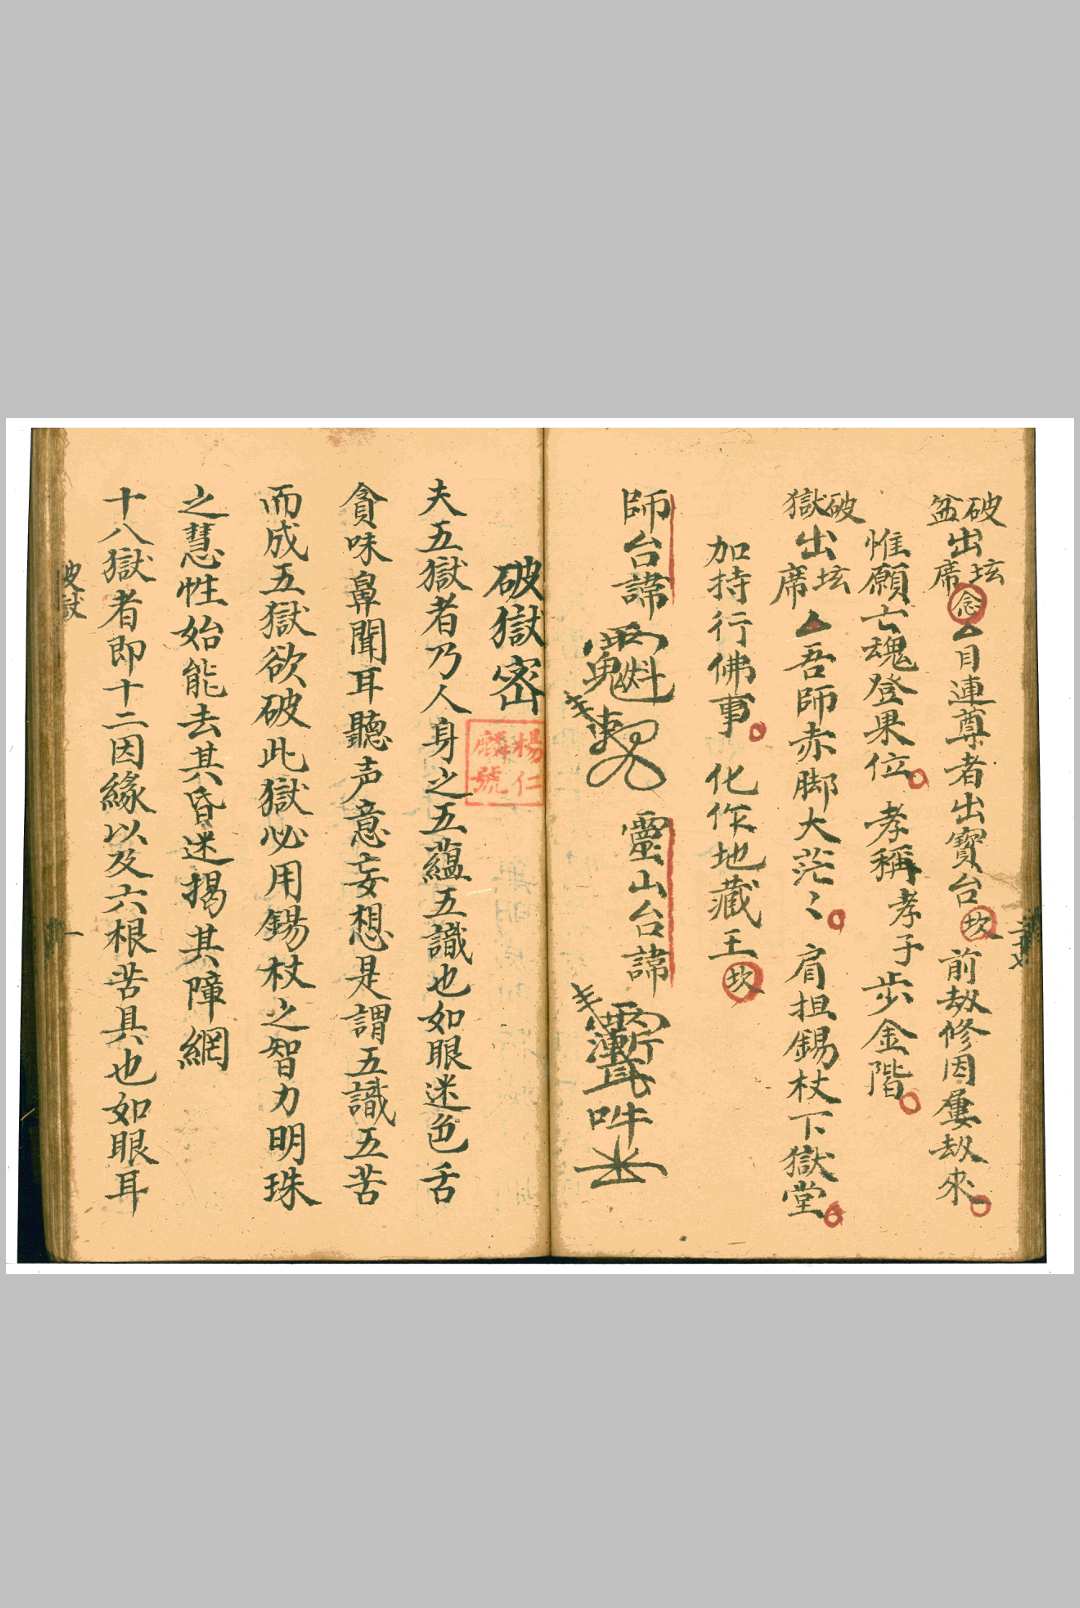 破盆出坛席念目連尊者出寶台坎前劫修因屢劫來
惟願亡魂登果位孝稱孝子步金階
破獄出坛席吾師赤脚大茫〻肩担錫杖下獄堂
加持行佛事化作地藏王坎
師台諱 靈山台諱
破獄密
楊仁
麟號
夫五獄者乃人身之五蘊五識也如眼迷色舌
貪味鼻聞耳聽声意妄想是謂五識五苦
而成五獄欲破此獄必用錫杖之智力明珠
之慧性始能去其昏迷揭其障網
十八獄者即十二因緣以及六根苦具也如眼耳
破獄
一